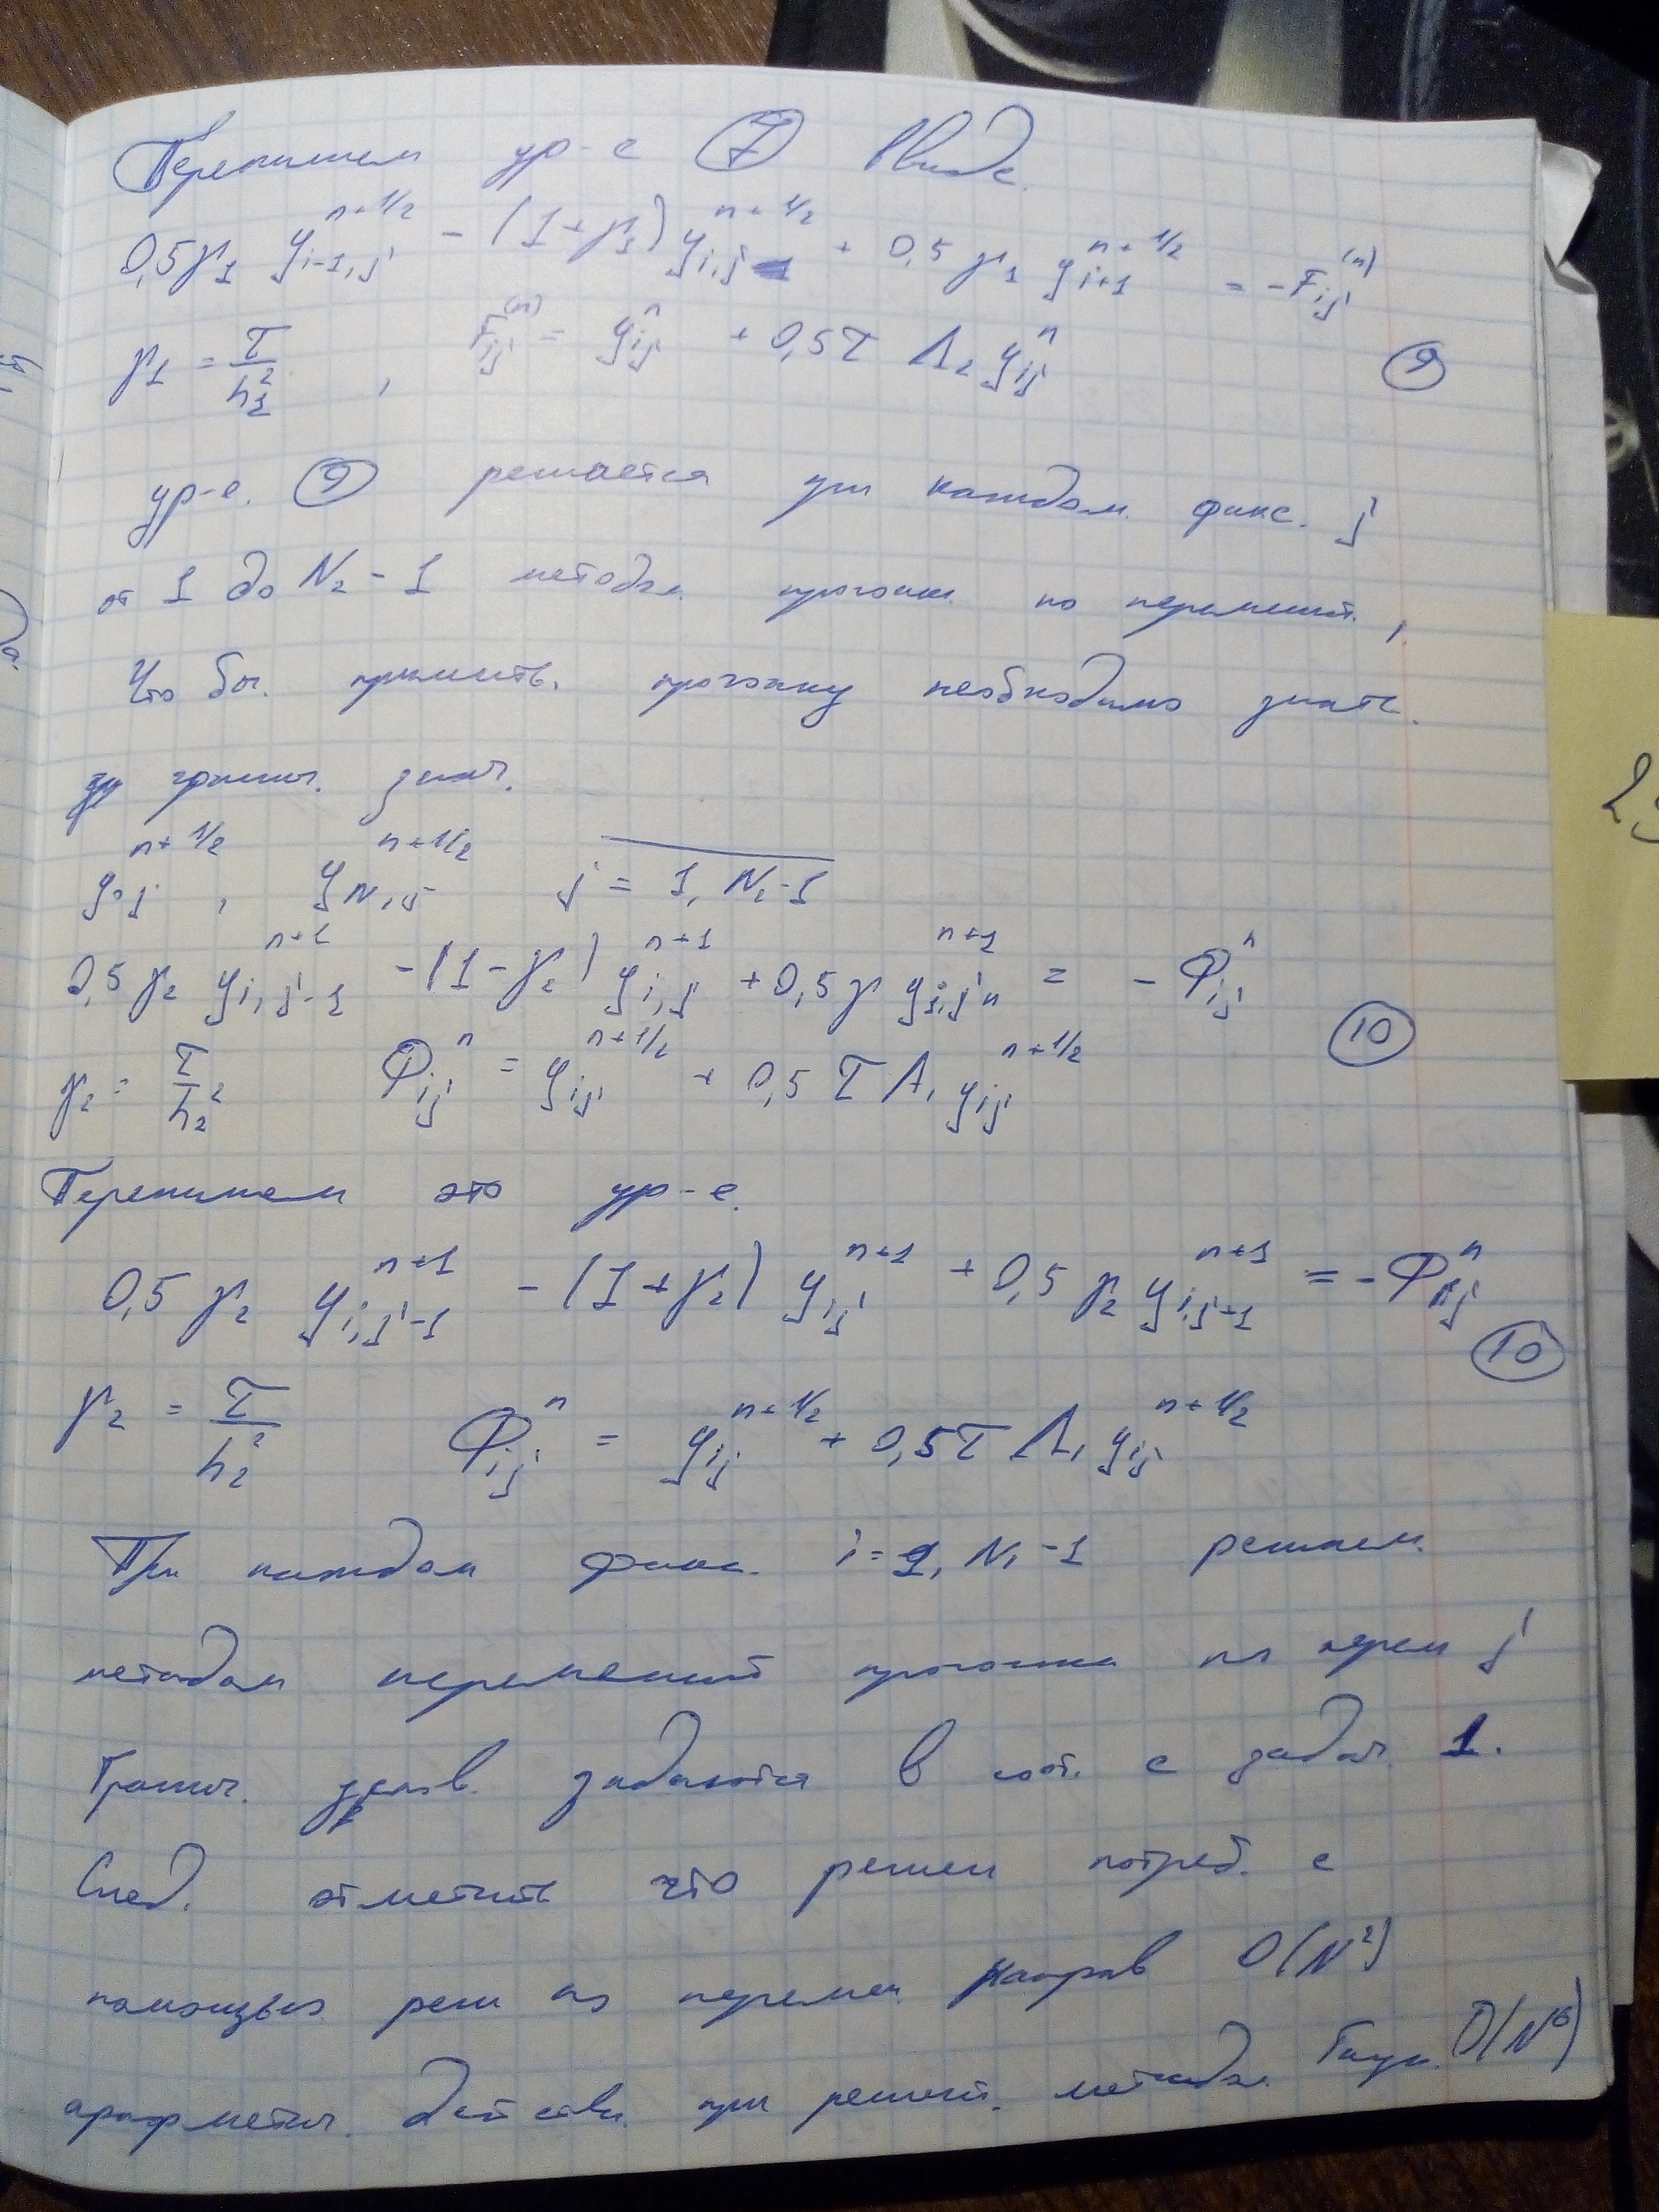 Перепишем ур-е ⑦ в виде.
0,5γ₁ y_{i-1,j}^{n+1/2} - (1+γ₁) y_{i,j}^{n+1/2} + 0,5 γ₁ y_{i+1}^{n+1/2} = -F_{ij}^{(n)}
γ₁ = τ/h₁² , F_{ij}^{(n)} = y_{ij}^n + 0,5τ Λ₂ y_{ij}^n ⑨
ур-е. ⑨ решается при каждом фикс. j
от 1 до N₂ - 1 методом прогонки по переменной ,
Что бы. применить. прогонку необходимо знать.
гранич. знач.
y_{0j}^{n+1/2} , y_{N₁j}^{n+1/2} j = 1, N₂-1
0,5 γ₂ y_{i,j-1}^{n+1} - (1-γ₂) y_{i,j}^{n+1} + 0,5γ y_{i,j+1}^{n+1} = - Φ_{ij}^n
γ₂ = τ/h₂² Φ_{ij}^n = y_{ij}^{n+1/2} + 0,5 τ Λ₁ y_{ij}^{n+1/2} ⑩
Перепишем это ур-е.
0,5 γ₂ y_{i,j-1}^{n+1} - (1+γ₂) y_{ij}^{n+1} + 0,5 γ₂ y_{i,j-1}^{n+1} = - Φ_{ij}^n
⑩
γ₂ = τ/h₂² Φ_{ij}^n = y_{ij}^{n+1/2} + 0,5τ Λ₁ y_{ij}^{n+1/2}
При каждом фикс. i = 1, N₁ -1 решаем.
методом переменной прогонки по перем j
Гранич. услов. задаются в соот. с задач. 1.
След. отметить что решен потреб. с
помощью реш по перемен. направ O(N²)
арифметич. действи. при решении. методом. Гаус. O(N⁶)